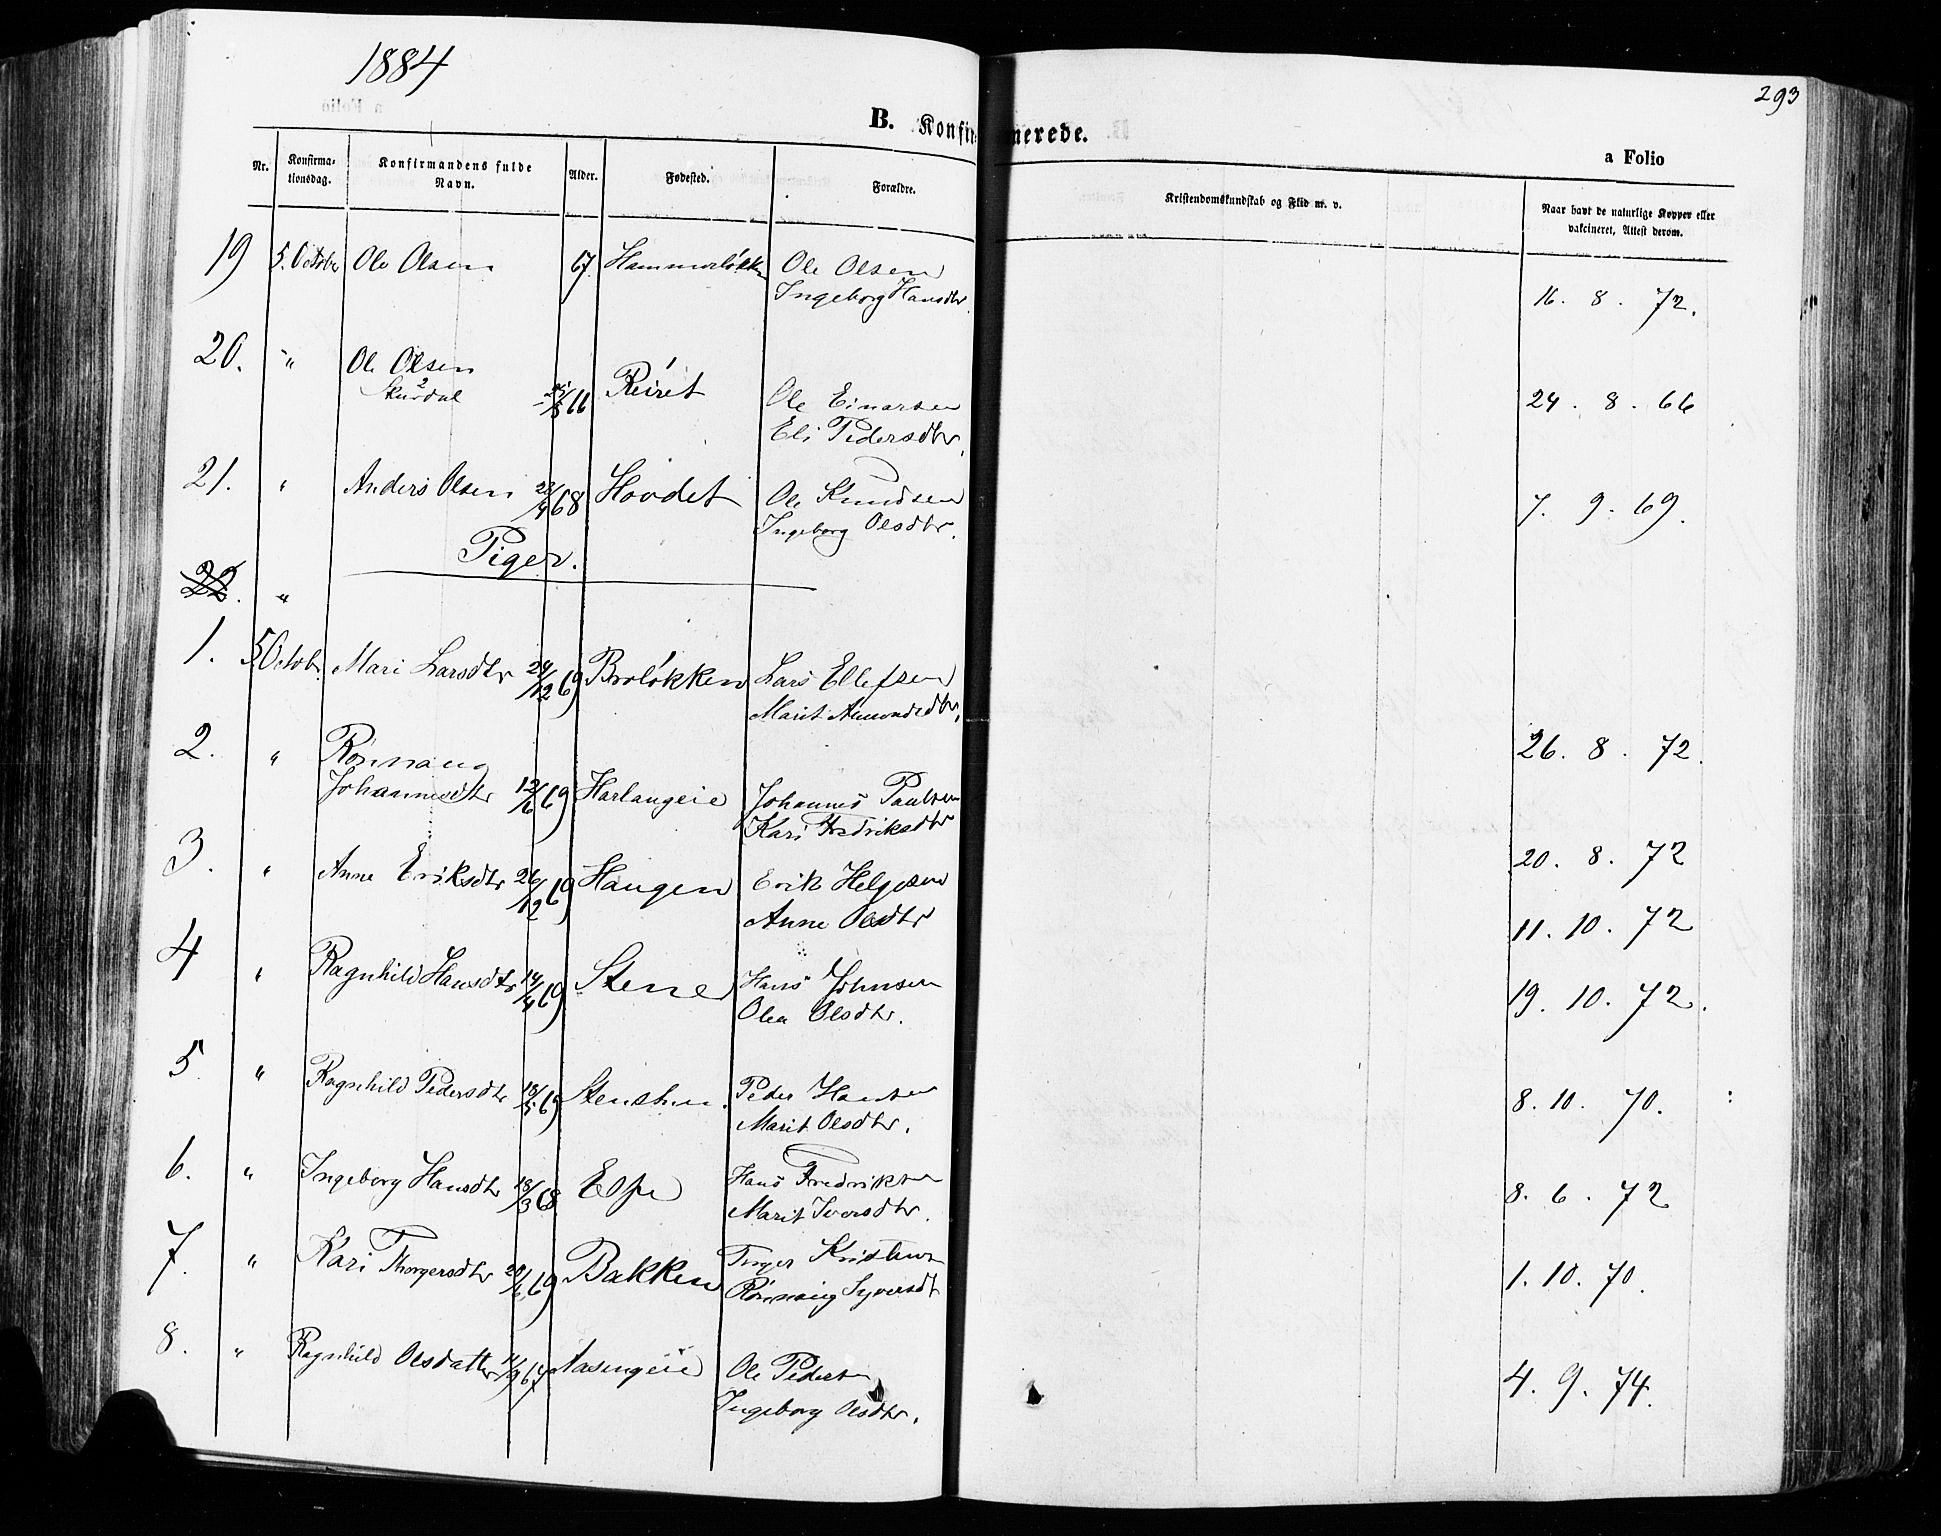 1884
293
B. Konfirmerede.
a Folio
Nr. Konfirma-tionsdag. Konfirmandens fulde Navn. Alder. Fødested. Forældre. Kristendomskundskab og Flid m. v. Naar havt de naturlige Kopper eller vakcineret, Attest derom.
19 5. October Ole Olsen 67. Hammerløkken Ole Olsen
Ingeborg Hansdtr. 16. 8. 72.
20. " Ole Olsen
Skurdal 66 Reiret Ole Einarsen 24. 8. 66
Eli Pedersdtr.
21. " Anders Olsen 28/4 68 Hovdet Ole Knudsen 7. 9. 69.
Ingeborg Olsdtr.
Piger.
22. "
1. 5 Octob. Mari Larsdtr 24/12 69 Broløkken Lars Ellefsen
Marit Amundsdtr. 26. 8. 72.
2. " Rønnaug
Johannesdtr 12/6 69 Harlangeie Johannes Paulsen
Kari Fredriksdtr 20. 8. 72
3. " Anne Eriksdtr 26/12 69 Haugen Erik Helgesen
Anne Olsdtr 11. 10. 72
4 " Ragnhild Hansdtr 14/4 69 Stene Hans Johnsen 19. 10. 72.
Olea Olsdtr.
5. " Ragnhild Pedersdtr 18/5 69 Peder Hansen 8. 10. 70.
Marit Olsdtr.
6. " Ingeborg Hansdtr 18/3 68 Espe Hans Fredriksen 8. 6. 72
Marit Iversdtr.
7. " Kari Thorgersdtr 20/6 69 Bakken Torger Kristensen 1. 10. 70.
Rønnaug Syversdt
8. " Ragnhild Olsdatter 11/9 67 Aasengeie Ole Pedersen 4. 9. 74.
Ingeborg Olsdtr.